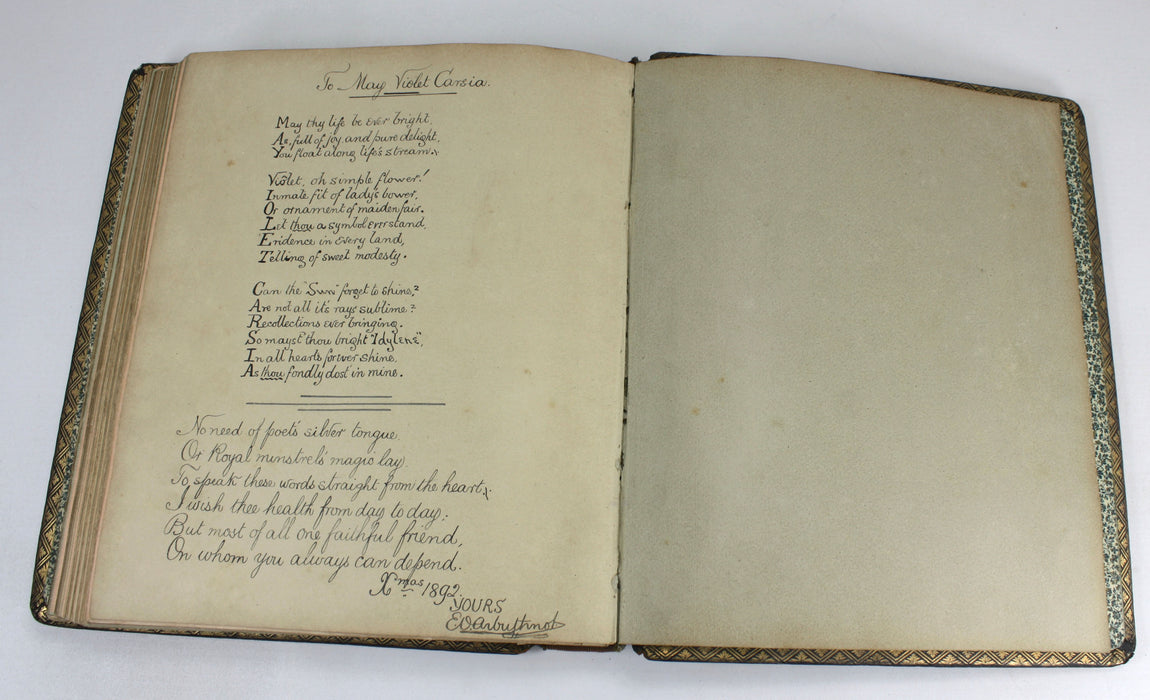 To May Violet Carsia.
May thy life be ever bright,
As full of joy and pure delight,
You float along life's stream.
Violet, oh simple flower!
Inmate fit of lady's bower,
Or ornament of maiden fair.
Let thou a symbol ever stand,
Evidence in every land,
Telling of sweet modesty.
Can the "Sun" forget to shine,?
Are not all it's rays sublime?
Recollections ever bringing.
So mayst thou bright "Idylene",
In all hearts forever shine,
As thou fondly dost in mine.
No need of poet's silver tongue
Or Royal minstrel's magic lay
To speak these words straight from the heart,
I wish thee health from day to day;
But most of all one faithful friend,
On whom you always can depend.
Xmas 1892.
YOURS
E.O. Arbuthnot